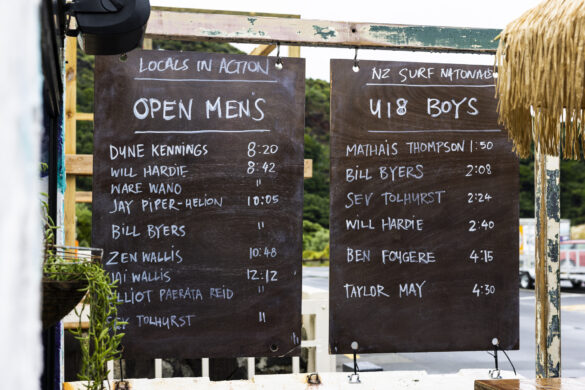 LOCALS IN ACTION
OPEN MEN'S
DYNE KENNINGS 8:20
WILL HARDIE 8:42
WARE WANO "
JAY PIPER-HELION 10:05
BILL BYERS "
ZEN WALLIS 10:48
WALLIS 12:12
PAERATA REID "
TOLHURST "
NZ SURF NATIONALS
U18 BOYS
MATHAIS THOMPSON 1:50
BILL BYERS 2:08
SEV TOLHURST 2:24
WILL HARDIE 2:40
BEN FOYGERE 4:15
TAYLOR MAY 4:30